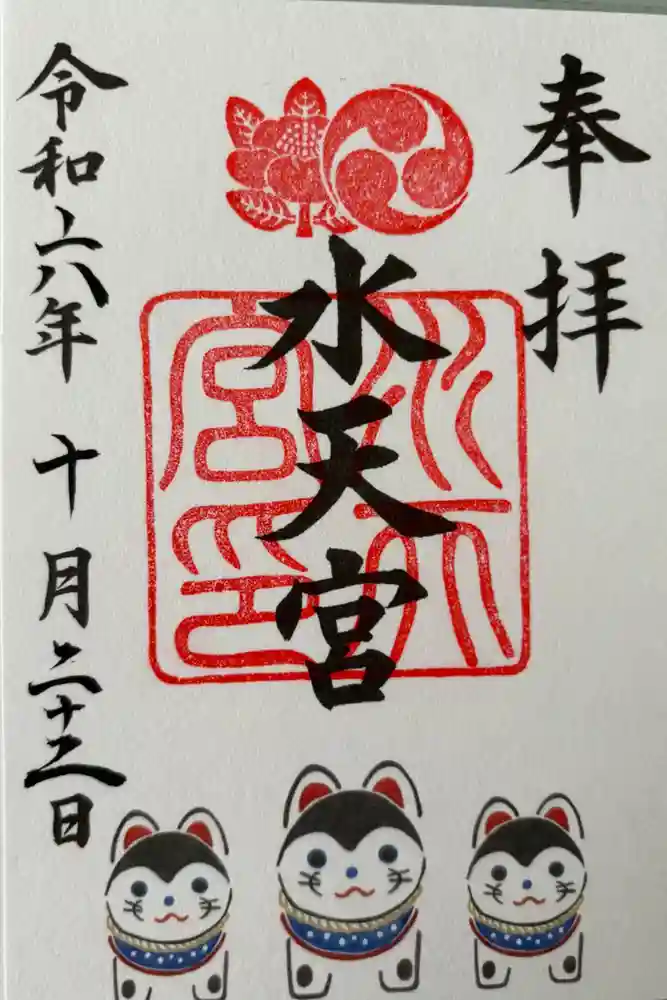 奉拝
水天宮
水天宮印
令和六年十月二十三日